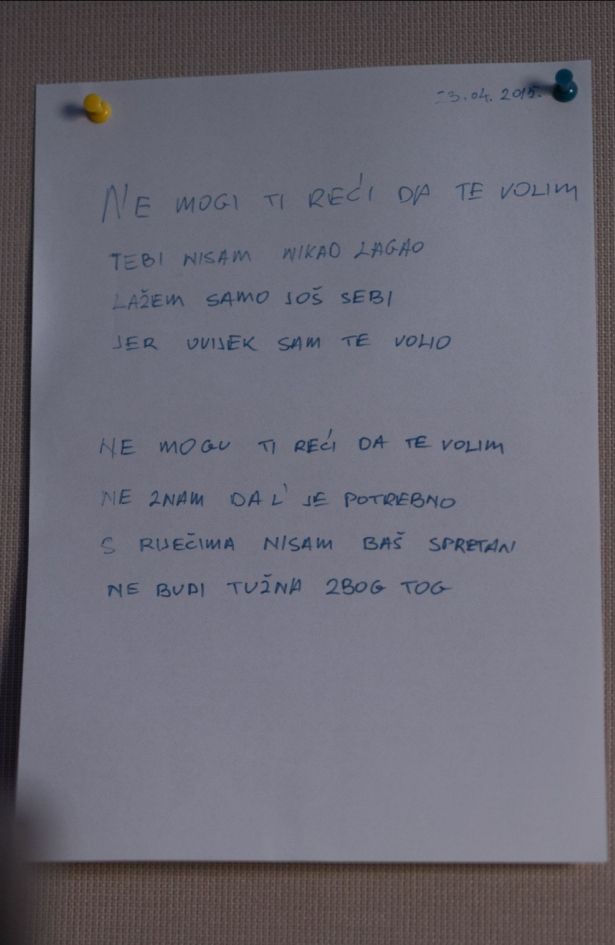 23.04. 2015.
NE MOGI TI REĆI DA TE VOLIM
TEBI NISAM NIKAD LAGAO
LAŽEM SAMO JOŠ SEBI
JER UVIJEK SAM TE VOLIO
NE MOGU TI REĆI DA TE VOLIM
NE ZNAM DA L' JE POTREBNO
S RIJEČIMA NISAM BAŠ SPRETAN
NE BUDI TUŽNA ZBOG TOG